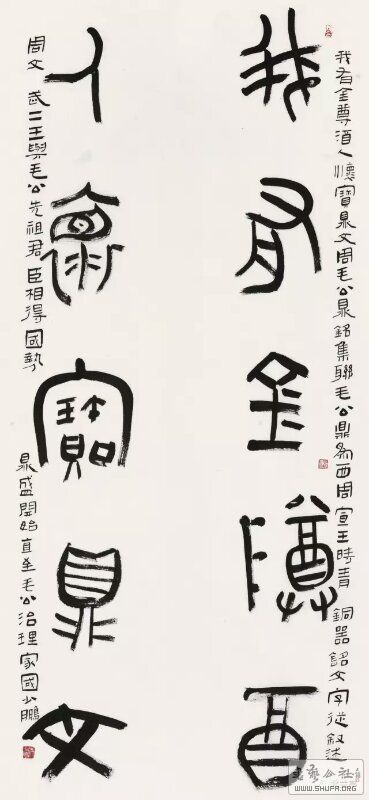 我有金尊酒人懷寶鼎文周毛公鼎銘集聯毛公鼎為西周宣王時青銅器銘文字從敘述
我有金尊酉
人懷寶鼎文
周文武二王與毛公先祖君臣相得國勢
鼎盛開始直至毛公治理家國少鵬
書藝公社
WWW.SHUFA.ORG